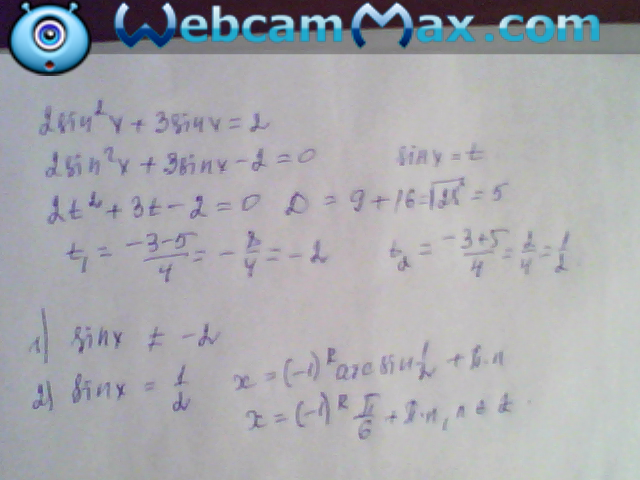 WebcamMax.com
2sin²x + 3sinx = 2
2sin²x + 3sinx - 2 = 0 sinx = t
2t² + 3t - 2 = 0 D = 9 + 16 = √25² = 5
t₁ = (-3-5)/4 = -8/4 = -2 t₂ = (-3+5)/4 = 2/4 = 1/2
1) sinx ≠ -2
2) sinx = 1/2 x = (-1)ᴿ arcsin 1/2 + π·n
x = (-1)ᴿ π/6 + π·n, n ∈ Z.